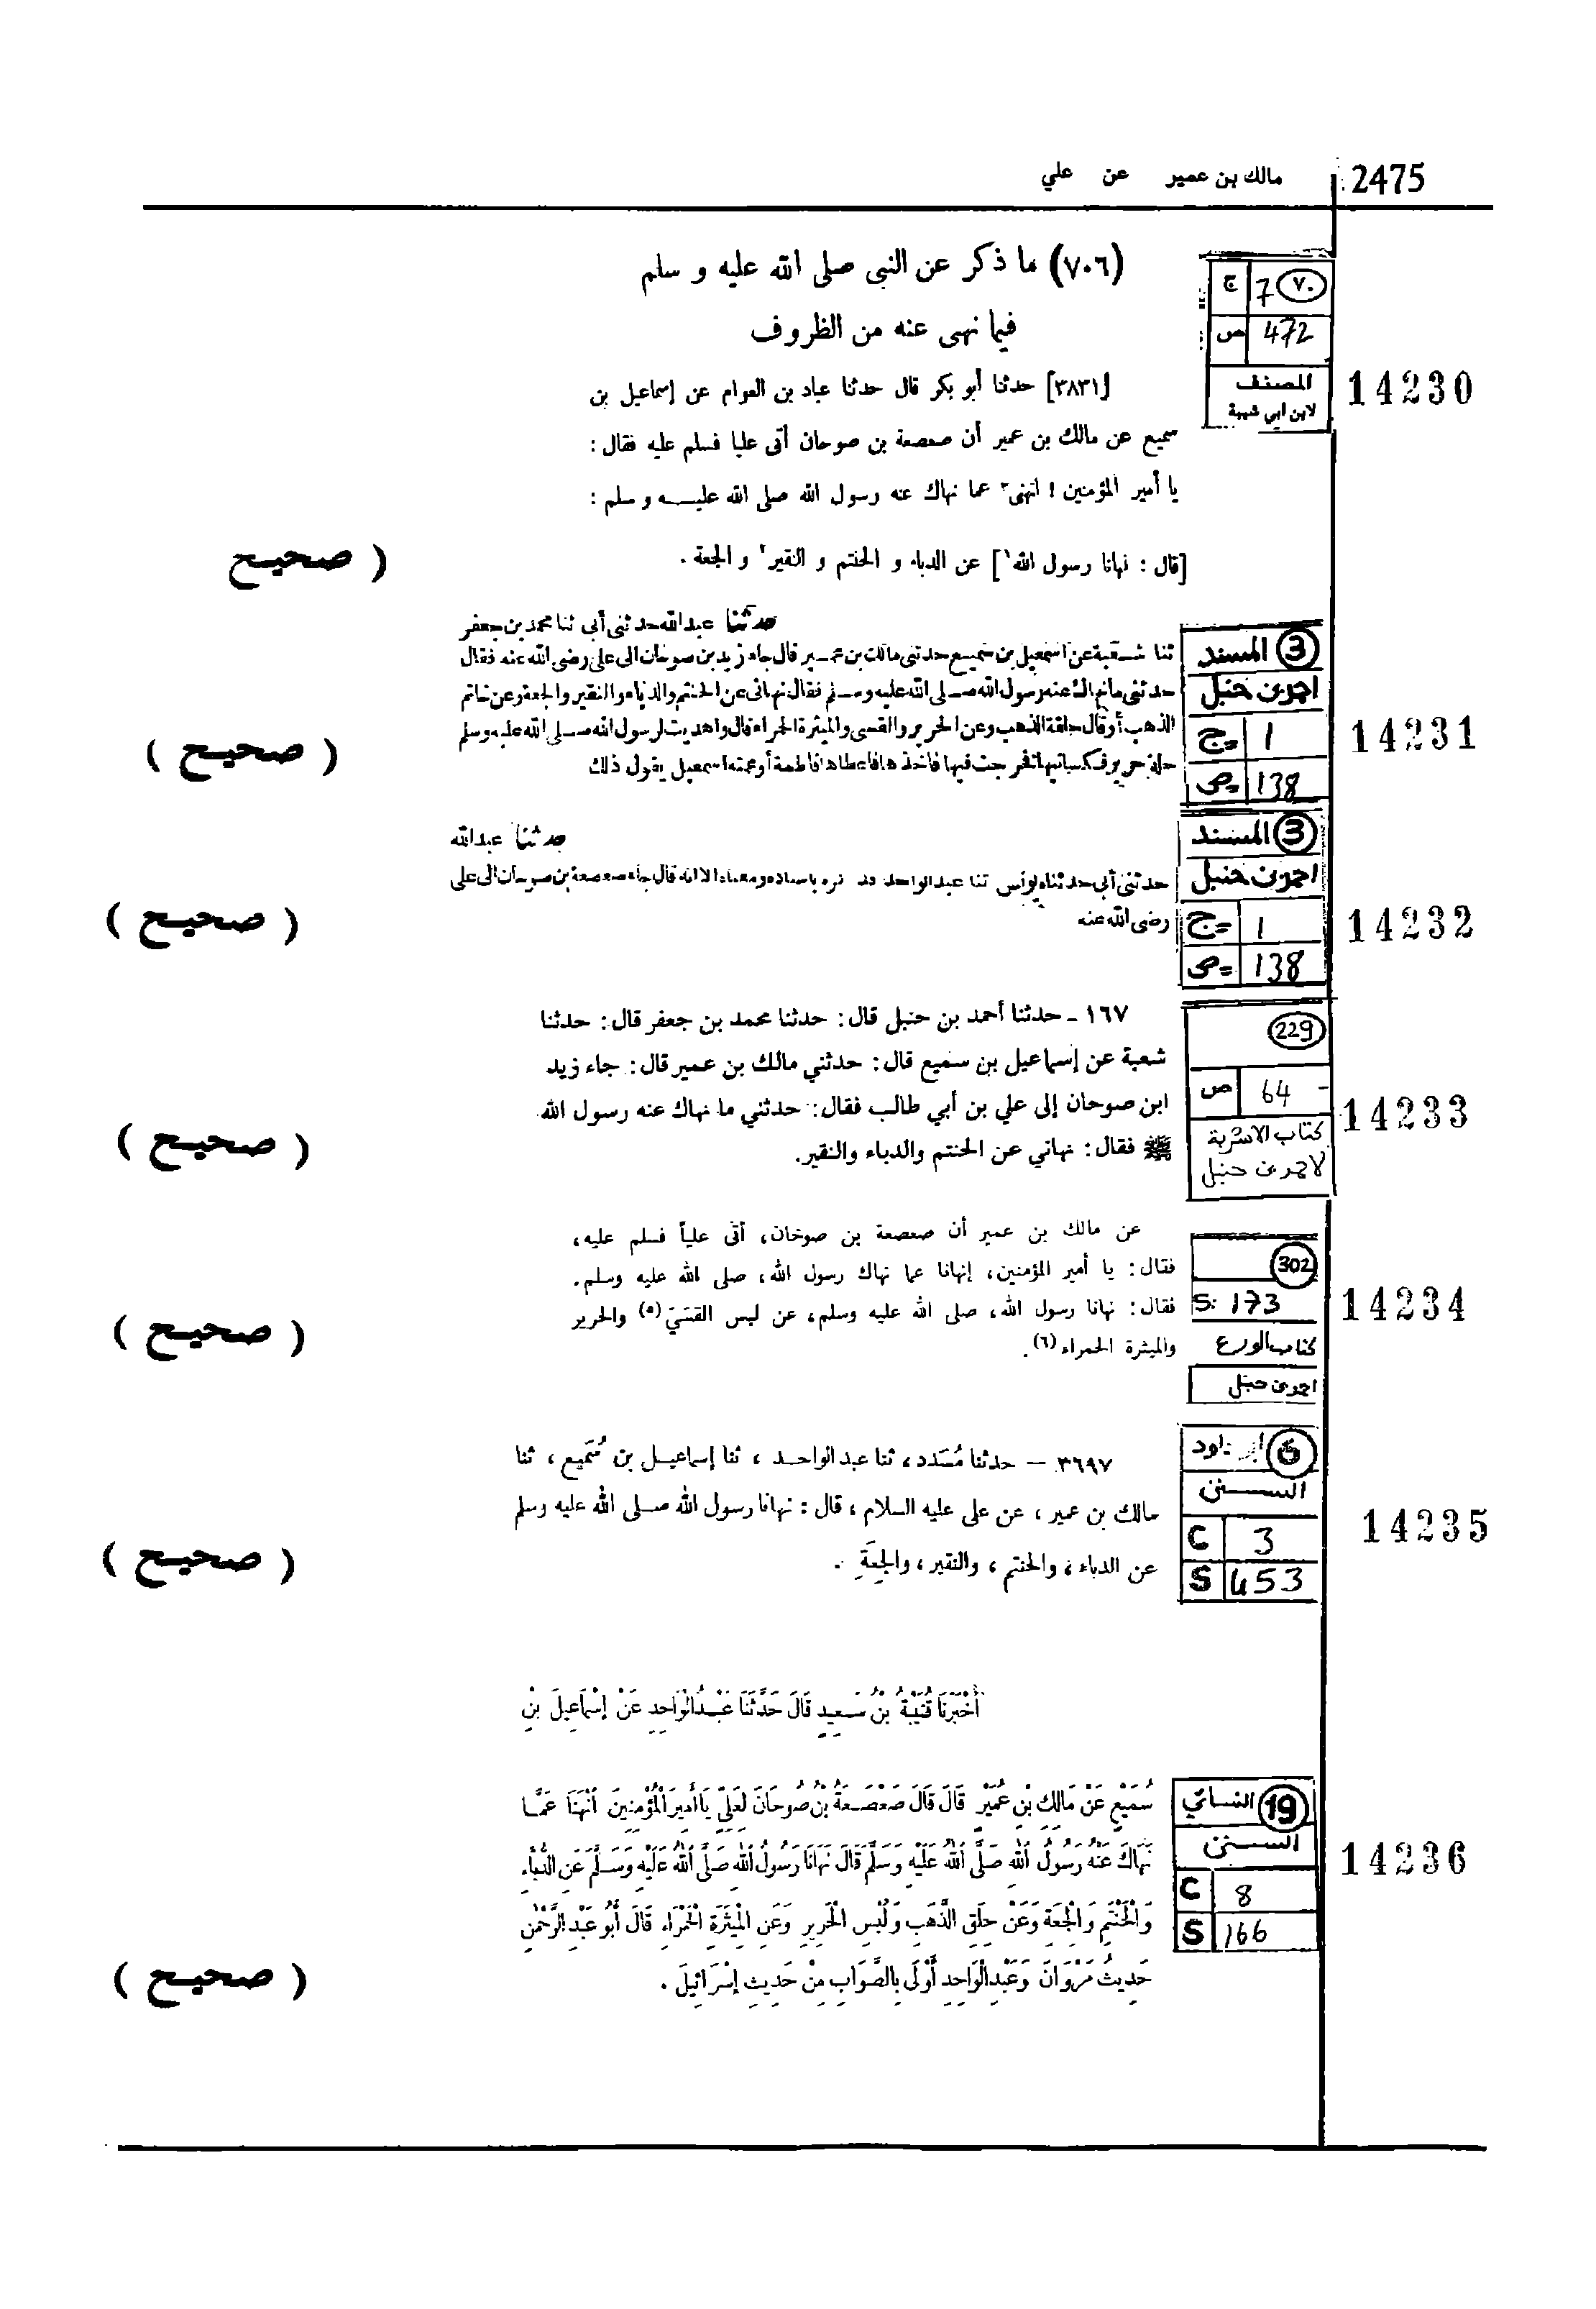 2475 مالك بن عمير عن علي
(٧٠٦) ما ذكر عن النبى صلى الله عليه و سلم
فيما نهى عنه من الظروف
ج 7 (٧٠)
ص 472
المصنف
لابن ابي شيبة
14230
[٣٨٣١] حدثنا أبو بكر قال حدثنا عباد بن العوام عن إسماعيل بن
سميع عن مالك بن عمير أن صعصعة بن صوحان أتى عليا فسلم عليه فقال :
يا أمير المؤمنين ! انهنى٣ عما نهاك عنه رسول الله صلى الله عليه و سلم :
[قال : نهانا رسول الله١] عن الدباء و الحنتم و النقير٢ و الجعة .
( صحيح
المسند (3)
احمد بن حنبل
ج= 1
ص= 138
14231
حدثنا عبدالله حدثنى أبى ثنا محمد بن جعفر
ثنا شعبة عن اسمعيل بن سميع حدثنى مالك بن عمير قال جاء زيد بن صوحان الى على رضى الله عنه فقال
حدثنى ما نهاك عنه رسول الله صلى الله عليه وسلم فقال نهانى عن الحنتم والدباء والنقير والجعة وعن خاتم
الذهب أو قال حلقة الذهب وعن الحرير والقسى والميثرة الحمراء قال واهديت لرسول الله صلى الله عليه وسلم
حلة حرير فكسانيها فخرجت فيها فاخذها فاعطاها فاطمة أو عمته اسمعيل يقول ذلك
( صحيح )
المسند (3)
احمد بن حنبل
ج= 1
ص= 138
14232
حدثنا عبدالله
حدثنى أبى حدثناه يونس ثنا عبدالواحد فذكره باسناده ومعناه الا انه قال جاء صعصعة بن صوحان الى على
رضى الله عنه
( صحيح )
(229)
ص 64
كتاب الاشربة
لاحمد بن حنبل
14233
١٦٧ ـ حدثنا أحمد بن حنبل قال: حدثنا محمد بن جعفر قال: حدثنا
شعبة عن إسماعيل بن سميع قال: حدثني مالك بن عمير قال: جاء زيد
ابن صوحان إلى علي بن أبي طالب فقال: حدثني ما نهاك عنه رسول الله
ﷺ فقال: نهاني عن الحنتم والدباء والنقير.
( صحيح )
(302)
S: 173
كتاب الورع
احمد بن حنبل
14234
عن مالك بن عمير أن صعصعة بن صوخان، أتى علياً فسلم عليه،
فقال: يا أمير المؤمنين، إنهانا عما نهاك رسول الله، صلى الله عليه وسلم.
فقال: نهانا رسول الله، صلى الله عليه وسلم، عن لبس القسّيّ(٥) والحرير
والميثرة الحمراء(٦).
( صحيح )
ابو داود (6)
السنن
C 3
S 453
14235
٣٦٩٧ — حدثنا مُسَدد ، ثنا عبد الواحد ، ثنا إسماعيل بن سُمَيع ، ثنا
مالك بن عمير ، عن على عليه السلام ، قال : نهانا رسول الله صلى الله عليه وسلم
عن الدباء ، والحنتم ، والنقير ، والجِعَةِ .
( صحيح )
أَخْبَرَنَا قُتَيْبَةُ بْنُ سَعِيدٍ قَالَ حَدَّثَنَا عَبْدُالْوَاحِدِ عَنْ إِسْمَاعِيلَ بْنِ
النسائي (19)
السنن
C 8
S 166
14236
سُمَيْعٍ عَنْ مَالِكِ بْنِ عُمَيْرٍ قَالَ قَالَ صَعْصَعَةُ بْنُ صُوحَانَ لِعَلِيٍّ يَا أَمِيرَ الْمُؤْمِنِينَ انْهَنَا عَمَّا
نَهَاكَ عَنْهُ رَسُولُ اللهِ صَلَّى اللهُ عَلَيْهِ وَسَلَّمَ قَالَ نَهَانَا رَسُولُ اللهِ صَلَّى اللهُ عَلَيْهِ وَسَلَّمَ عَنِ الدُّبَّاءِ
وَالْحَنْتَمِ وَالْجِعَةِ وَعَنْ حِلَقِ الذَّهَبِ وَلُبْسِ الْحَرِيرِ وَعَنِ الْمِيثَرَةِ الْحَمْرَاءِ قَالَ أَبُو عَبْدِ الرَّحْمٰنِ
حَدِيثُ مَرْوَانَ وَعَبْدِالْوَاحِدِ أَوْلَى بِالصَّوَابِ مِنْ حَدِيثِ إِسْرَائِيلَ .
( صحيح )